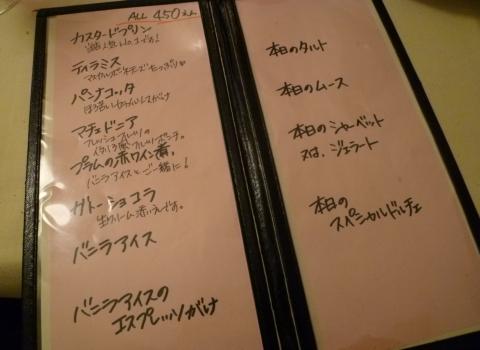 ALL 450えん
カスタードプリン
人気No.1です!
ティラミス
マスカルポーネチーズたっぷり
パンナコッタ
ほろ苦いカラメルソースがけ
マチェドニア
フレッシュフルーツの
イタリア風フルーツポンチ。
プラムの赤ワイン煮。
バニラアイスとご一緒に!
ガトーショコラ
生クリーム添えです。
バニラアイス
バニラアイスの
エスプレッソがけ
本日のタルト
本日のムース
本日のシャーベット
又は、ジェラート
本日の
スペシャルドルチェ